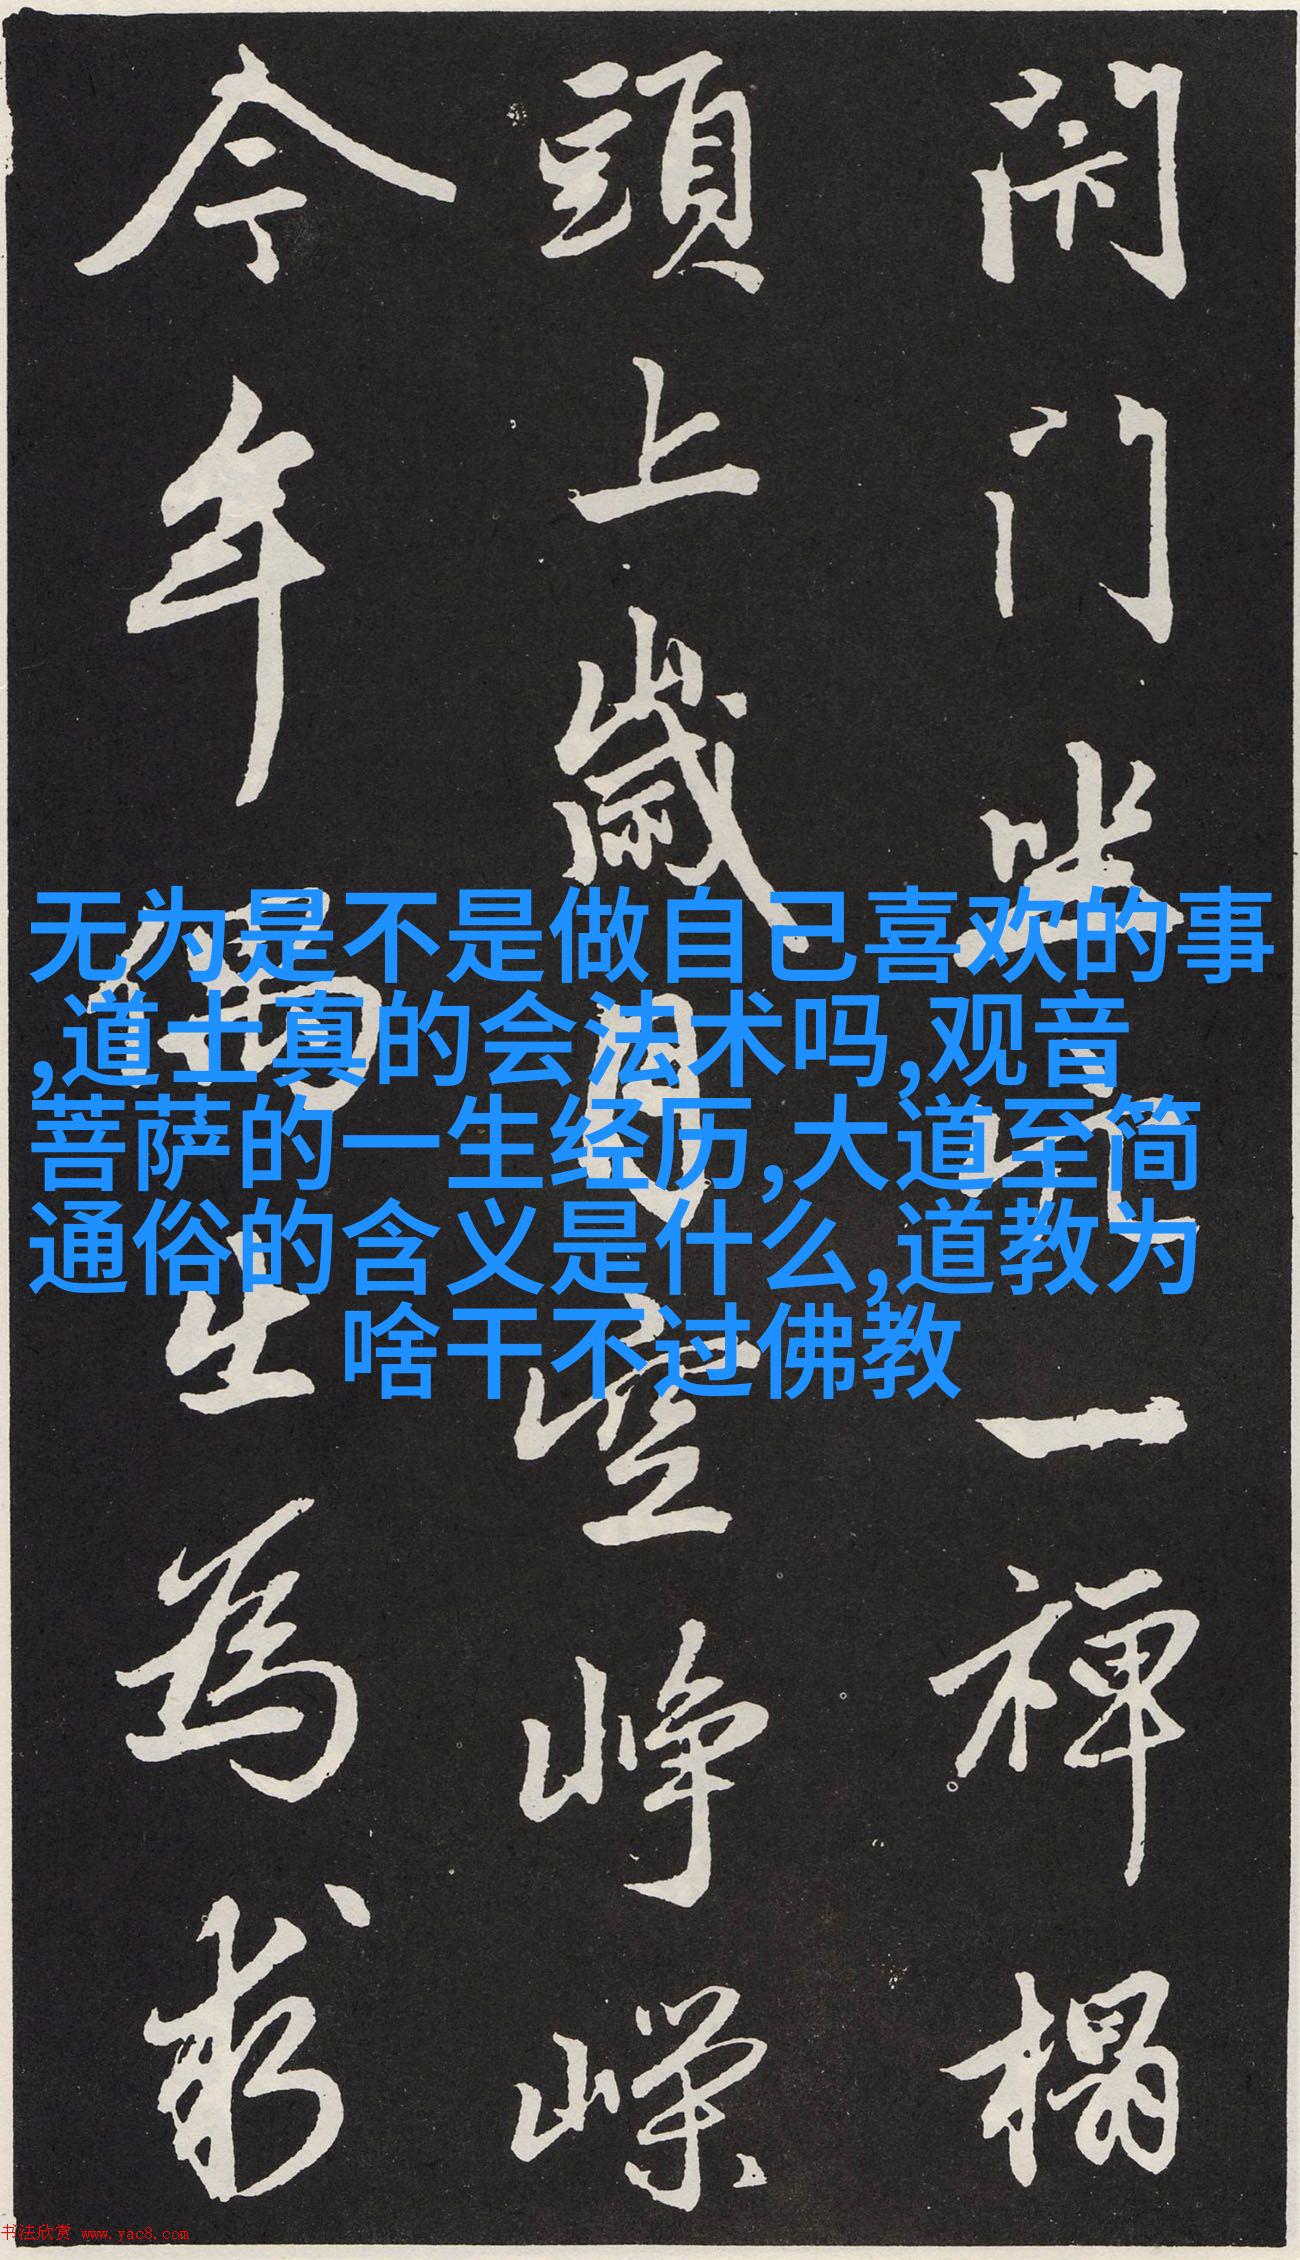 閇门坐穴一禅榻
頭上歲月空崢嶸
今年偶出為求
无为是不是做自己喜欢的事
,道士真的会法术吗,观音
菩萨的一生经历,大道至简
通俗的含义是什么,道教为
啥干不过佛教
书法欣赏 www.yac8.com